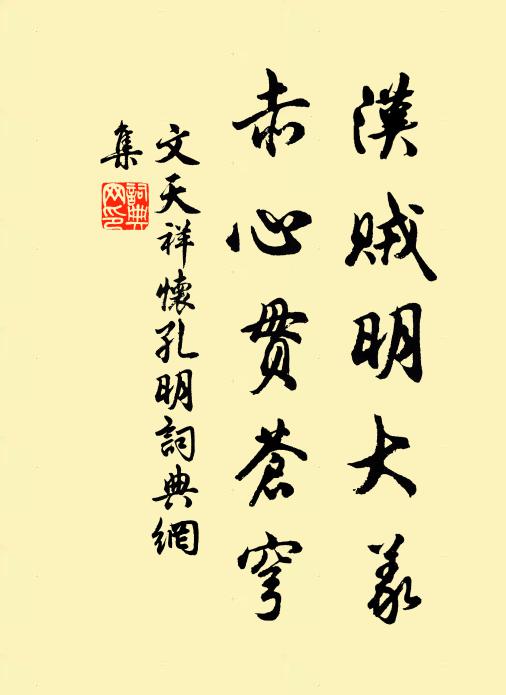 漢賊明大義
赤心貫蒼穹
文天祥懷孔明詞典網
集
詞典网印